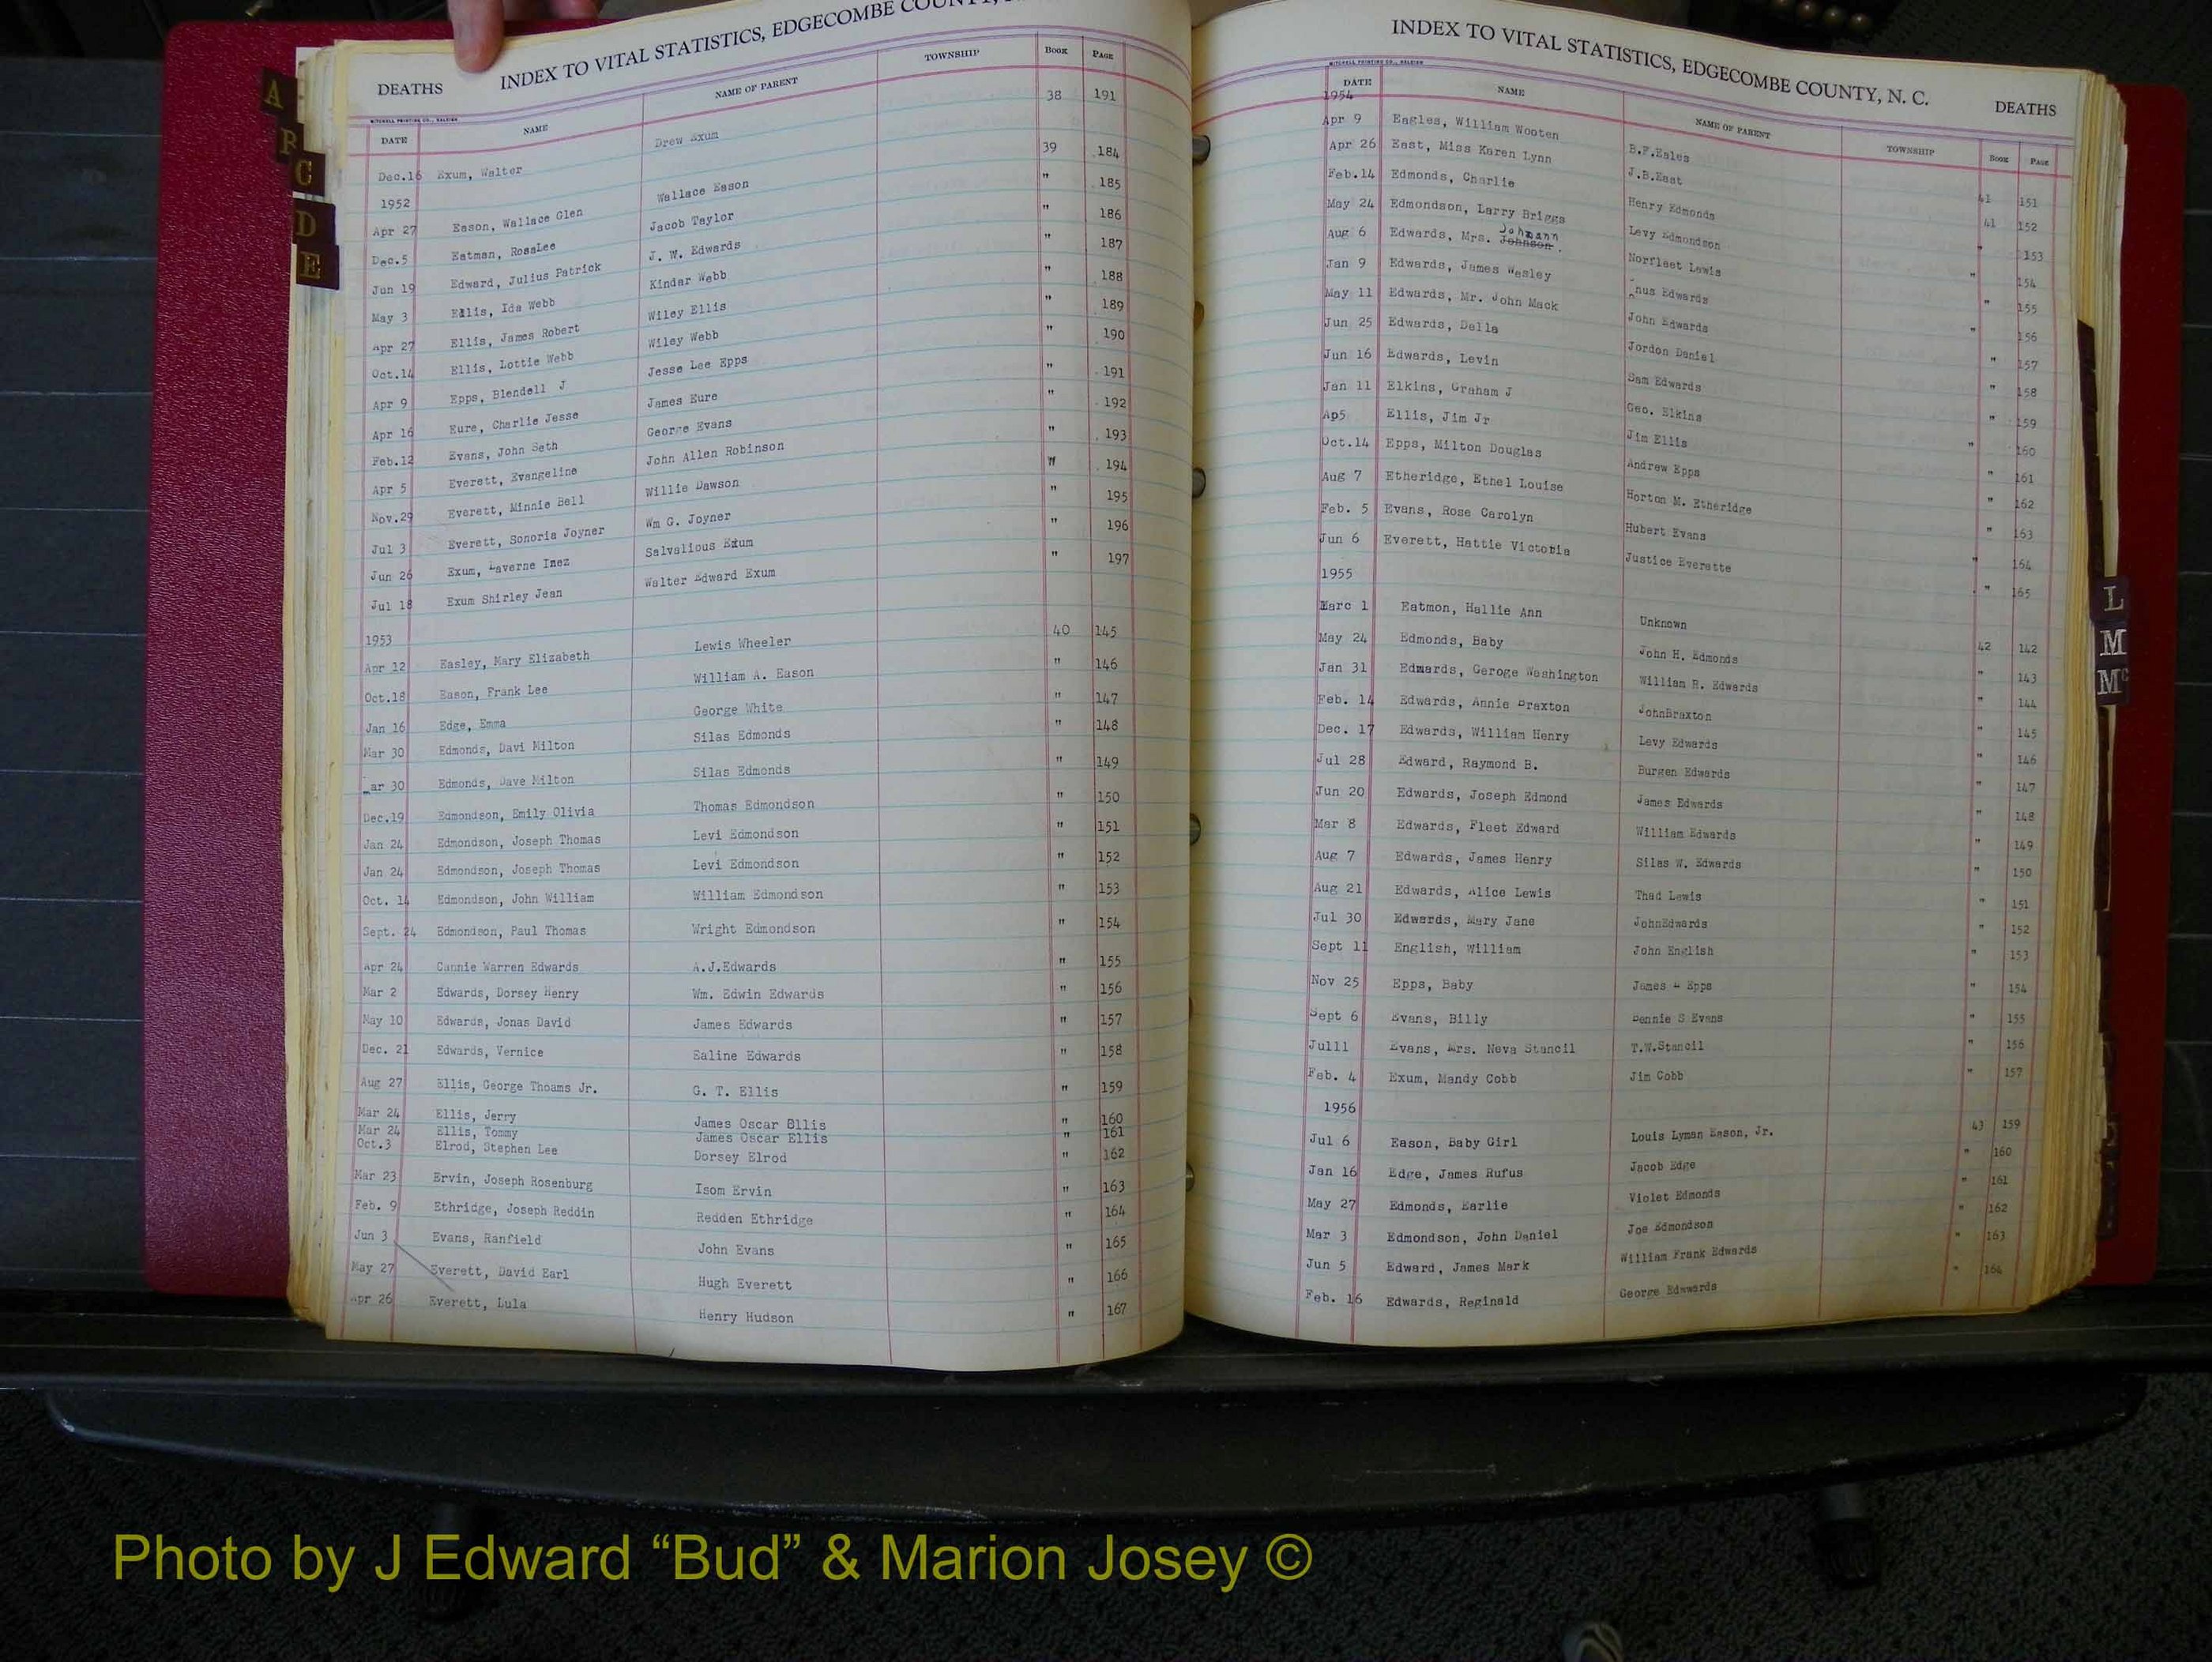 A
B
C
D
E
DEATHS INDEX TO VITAL STATISTICS, EDGECOMBE COUNTY,
MITCHELL PRINTING CO., RALEIGH
DATE NAME NAME OF PARENT TOWNSHIP BOOK PAGE
Dec.16 Exum, Walter Drew Exum 38 191
1952
Apr 27 Eason, Wallace Glen Wallace Eason 39 184
Dec.5 Eatman, RosaLee Jacob Taylor " 185
Jun 19 Edward, Julius Patrick J. W. Edwards " 186
May 3 Ellis, Ida Webb Kinder Webb " 187
Apr 27 Ellis, James Robert Wiley Ellis " 188
Oct.14 Ellis, Lottie Webb Wiley Webb " 189
Apr 9 Epps, Blendell J Jesse Lee Epps " 190
Apr 16 Eure, Charlie Jesse James Eure " 191
Feb.12 Evans, John Seth George Evans " 192
Apr 5 Everett, Evangeline John Allen Robinson " 193
Nov.29 Everett, Minnie Bell Willie Dawson " 194
Jul 3 Everett, Sonoria Joyner Wm G. Joyner " 195
Jun 26 Exum, Laverne Inez Salvalious Exum " 196
Jul 18 Exum Shirley Jean Walter Edward Exum " 197
1953
Apr 12 Easley, Mary Elizabeth Lewis Wheeler 40 145
Oct.18 Eason, Frank Lee William A. Eason " 146
Jan 16 Edge, Emma George White " 147
Mar 30 Edmonds, Davi Milton Silas Edmonds " 148
ar 30 Edmonds, Dave Milton Silas Edmonds " 149
Dec.19 Edmondson, Emily Olivia Thomas Edmondson " 150
Jan 24 Edmondson, Joseph Thomas Levi Edmondson " 151
Jan 24 Edmondson, Joseph Thomas Levi Edmondson " 152
Oct. 14 Edmondson, John William William Edmondson " 153
Sept. 24 Edmondson, Paul Thomas Wright Edmondson " 154
Apr 24 Cannie Warren Edwards A.J.Edwards " 155
Mar 2 Edwards, Dorsey Henry Wm. Edwin Edwards " 156
May 10 Edwards, Jonas David James Edwards " 157
Dec. 21 Edwards, Vernice Ealine Edwards " 158
Aug 27 Ellis, George Thoams Jr. G. T. Ellis " 159
Mar 24 Ellis, Jerry James Oscar Ellis " 160
Mar 24 Ellis, Tommy James Oscar Ellis " 161
Oct.3 Elrod, Stephen Lee Dorsey Elrod " 162
Mar 23 Ervin, Joseph Rosenburg Isom Ervin " 163
Feb. 9 Ethridge, Joseph Reddin Redden Ethridge " 164
Jun 3 Evans, Ranfield John Evans " 165
May 27 Everett, David Earl Hugh Everett " 166
Apr 26 Everett, Lula Henry Hudson " 167
INDEX TO VITAL STATISTICS, EDGECOMBE COUNTY, N. C. DEATHS
MITCHELL PRINTING CO., RALEIGH
DATE NAME NAME OF PARENT TOWNSHIP BOOK PAGE
1954
Apr 9 Eagles, William Wooten B.F.Eales 41 151
Apr 26 East, Miss Karen Lynn J.B.East 41 152
Feb.14 Edmonds, Charlie Henry Edmonds " 153
May 24 Edmondson, Larry Briggs Levy Edmondson " 154
Johnann
Aug 6 Edwards, Mrs. Johnson. Norfleet Lewis " 155
Jan 9 Edwards, James Wesley nus Edwards " 156
May 11 Edwards, Mr. John Mack John Edwards " 157
Jun 25 Edwards, Della Jordon Daniel " 158
Jun 16 Edwards, Levin Sam Edwards " 159
Jan 11 Elkins, Graham J Geo. Elkins " 160
Ap5 Ellis, Jim Jr Jim Ellis " 161
Oct.14 Epps, Milton Douglas Andrew Epps " 162
Aug 7 Etheridge, Ethel Louise Horton M. Etheridge " 163
Feb. 5 Evans, Rose Carolyn Hubert Evans " 164
Jun 6 Everett, Hattie Victoria Justice Everette " 165
1955
Marc 1 Eatmon, Hallie Ann Unknown 42 142
May 24 Edmonds, Baby John H. Edmonds " 143
Jan 31 Edwards, Geroge Washington William R. Edwards " 144
Feb. 14 Edwards, Annie Braxton JohnBraxton " 145
Dec. 17 Edwards, William Henry Levy Edwards " 146
Jul 28 Edward, Raymond B. Burgen Edwards " 147
Jun 20 Edwards, Joseph Edmond James Edwards " 148
Mar 8 Edwards, Fleet Edward William Edwards " 149
Aug 7 Edwards, James Henry Silas W. Edwards " 150
Aug 21 Edwards, Alice Lewis Thad Lewis " 151
Jul 30 Edwards, Mary Jane JohnEdwards " 152
Sept 11 English, William John English " 153
Nov 25 Epps, Baby James L Epps " 154
Sept 6 Evans, Billy Bennie S Evans " 155
Jul11 Evans, Mrs. Neva Stancil T.W.Stancil " 156
Feb. 4 Exum, Mandy Cobb Jim Cobb " 157
1956
Jul 6 Eason, Baby Girl Louis Lyman Eason, Jr. 43 159
Jan 16 Edge, James Rufus Jacob Edge " 160
May 27 Edmonds, Earlie Violet Edmonds " 161
Mar 3 Edmondson, John Daniel Joe Edmondson " 162
Jun 5 Edward, James Mark William Frank Edwards " 163
Feb. 16 Edwards, Reginald George Edwards " 164
L
M
Mc
Photo by J Edward “Bud” & Marion Josey ©